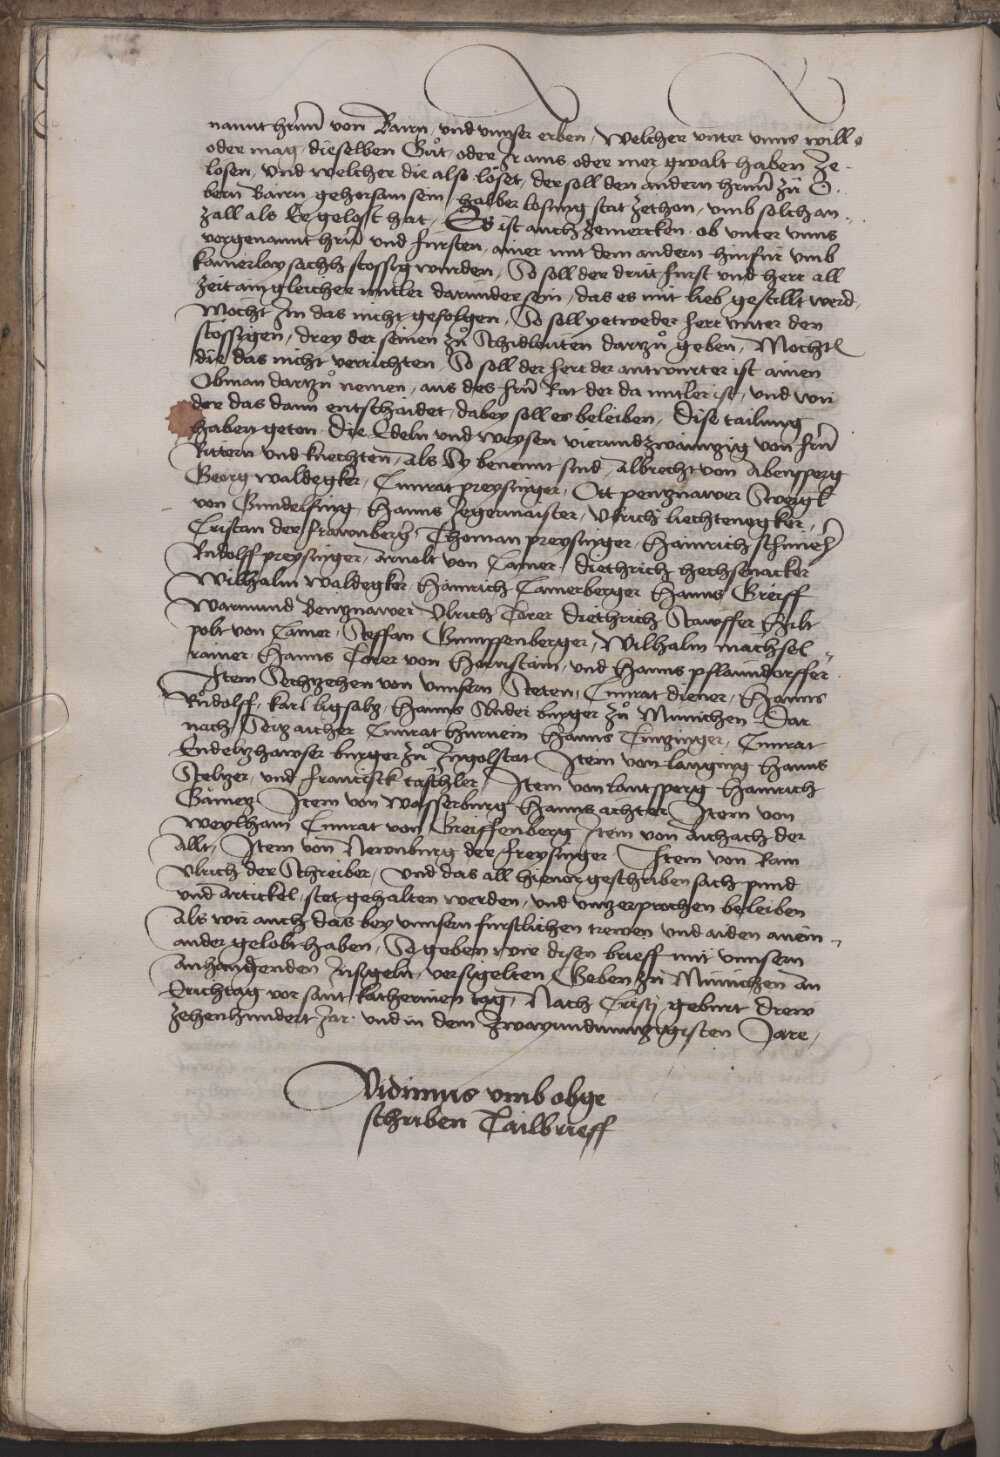 nannt hrnn von Bairn, und unnser erben, Welcher unter unns will
oder mag, dieselben Gůt, oder Ir ains oder mer gwalt haben ze-
losen, Und welcher die also löset, der soll den andern hrnn zů O-
bern Bairn gehorsam sein, halber losung stat zethon, umb solch an-
zall als Er gelost hat, Es ist auch zemercken, ob unter unns
vorgenannt hrn und fürsten, ainer mit dem andern hinfür umb
sachh stossig würden, So soll der dritt fürst und herr all
zeit ain gleicher mitler darunder sein, das es mit lieb gestillt werd,
Mocht In das nicht gefolgen, So soll yetweder herr unter den
stössigen, drey der seinen zů Schidleuten dartzů geben, Mocht
die das nicht verrichten, So soll der herr der antwurter ist ainen
Obman dartzů nemen, aus des hrn Rat der da mitler ist, und wie
der das dann entschaidet, dabey soll es beleiben, Dise tailung
haben geton die Edeln und weysen vierundzwaintzig von hrn
Rittern und knechten, als Sy benennt sind, Albrecht von Abensperg
Georg waldegker, Cunrat preysinger, Ott pentznawer Sweigk
von Gundelfing, Hanns Jegermaister, Ulrich liechtenegker,
Cristan der frawnberg, Thoman preysinger, Hainrich schmieh
Rudolff preysinger, Arnolt von Camer, Diethrich hechsenacker
Wilhalm waldegker Hainrich Camerberger Hanns Greiff
Warmund Pentznawer Ulrich Torer Diethrich Stawffer Hilt
polt von Camer, Steffan Gumppenberger, Wilhalm mächsel-
rainer, Hanns Torer von Hornstain, und Hanns pflaundorffer
Item Sechtzehen von unnsern Steten, Cunrat diener, Hanns
Růdolff, karl ligsaltz, Hanns Under burger zů Münichen Dar
nach Seitz aicher Cunrat hurnein Hanns Tintzinger, Cunrat
Endeltzhawser burger zů Ingolstat Item von lauging Hanns
Steltzer, und Francisck täschler, Item von lantsperg Hainrich
Gämertz Item von Wasserburg Hanns achter Item von
Weylhaim Cunrat von Greiffenberg Item von Aichach der
Allt, Item von Newnburg der freysinger Item von Rain
Ulrich der Schreiber, Und das all hievor geschriben sach pund
und artickel, stet gehalten werden, und unzerprochen beleiben
Als wir auch das bey unnsern fürstlichen trewen und aiden anein-
ander gelobt haben, So geben wir disen brieff mit unnsern
anhangenden Insigeln, versigelten Geben zů Münichen an
Erichtag vor sant katherinen tag, Nach Cristj geburt Drew
zehenhundert Jar und in dem Zwayundnuntzigisten Jare,
Vidimus umb obge
schriben Tailbrieff